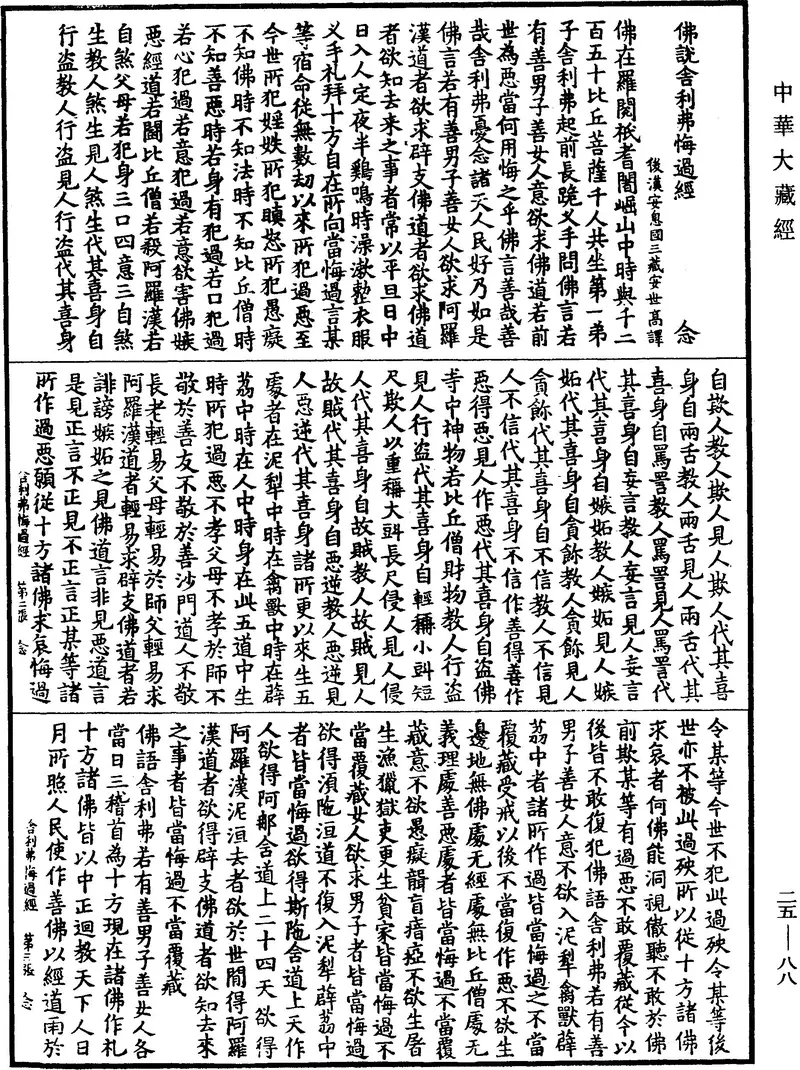 中華大藏經
佛說舍利弗悔過經　　　念
後漢安息國三藏安世高譯
佛在羅閱祇耆闍崛山中時與千二
百五十比丘菩薩千人共坐第一弟
子舍利弗起前長跪叉手問佛言若
有善男子善女人意欲求佛道若前
世為惡當何用悔之乎佛言善哉善
哉舍利弗憂念諸天人民好乃如是
佛言若有善男子善女人欲求阿羅
漢道者欲求辟支佛道者欲求佛道
者欲知去來之事者常以平旦日中
日入人定夜半鷄鳴時澡漱整衣服
叉手礼拜十方自在所向當悔過言某
等宿命從無數劫以來所犯過惡至
今世所犯婬妷所犯瞋怒所犯愚癡
不知佛時不知法時不知比丘僧時
不知善惡時若身有犯過若口犯過
若心犯過若意犯過若意欲害佛嫉
惡經道若鬪比丘僧若殺阿羅漢若
自煞父母若犯身三口四意三自煞
生教人煞生見人煞生代其喜身自
行盜教人行盜見人行盜代其喜身
自欺人教人欺人見人欺人代其喜
身自兩舌教人兩舌見人兩舌代其
喜身自罵詈教人罵詈見人罵詈代
其喜身自妄言教人妄言見人妄言
代其喜身自嫉妬教人嫉妬見人嫉
妬代其喜身自貪飻教人貪飻見人
貪飻代其喜身自不信教人不信見
人不信代其喜身不信作善得善作
惡得惡見人作惡代其喜身自盜佛
寺中神物若比丘僧財物教人行盜
見人行盜代其喜身自輕稱小㪷短
尺欺人以重稱大㪷長尺侵人見人侵
人代其喜身自故賊教人故賊見人
故賊代其喜身自惡逆教人惡逆見
人惡逆代其喜身諸所更以來生五
處者在泥犁中時在禽獸中時在薜
荔中時在人中時身在此五道中生
時所犯過惡不孝父母不孝於師不
敬於善友不敬於善沙門道人不敬
長老輕易父母輕易於師父輕易求
阿羅漢道者輕易求辟支佛道者若
誹謗嫉妬之見佛道言非見惡道言
是見正言不正見不正言正某等諸
所作過惡願從十方諸佛求哀悔過
舍利弗悔過經　第二張　念
令某等今世不犯此過殃令某等後
世亦不被此過殃所以從十方諸佛
求哀者何佛能洞視徹聽不敢於佛
前欺某等有過惡不敢覆藏從今以
後皆不敢復犯佛語舍利弗若有善
男子善女人意不欲入泥犁禽獸薜
荔中者諸所作過皆當悔過之不當
覆藏受戒以後不當復作惡不欲生
邊地無佛處无經處無比丘僧處无
義理處善惡處者皆當悔過不當覆
藏意不欲愚癡聾盲瘖瘂不欲生屠
生漁獵獄吏更生貧家皆當悔過不
當覆藏女人欲求男子者皆當悔過
欲得須陁洹道不復入泥犁薜荔中
者皆當悔過欲得斯陁含道上天作
人欲得阿那含道上二十四天欲得
阿羅漢泥洹去者欲於世間得阿羅
漢道者欲得辟支佛道者欲知去來
之事者皆當悔過不當覆藏
佛語舍利弗若有善男子善女人各
當日三稽首為十方現在諸佛作礼
十方諸佛皆以中正迴教天下人日
月所照人民使作善佛以經道雨於
舍利弗悔過經　第三張　念
二五—八八